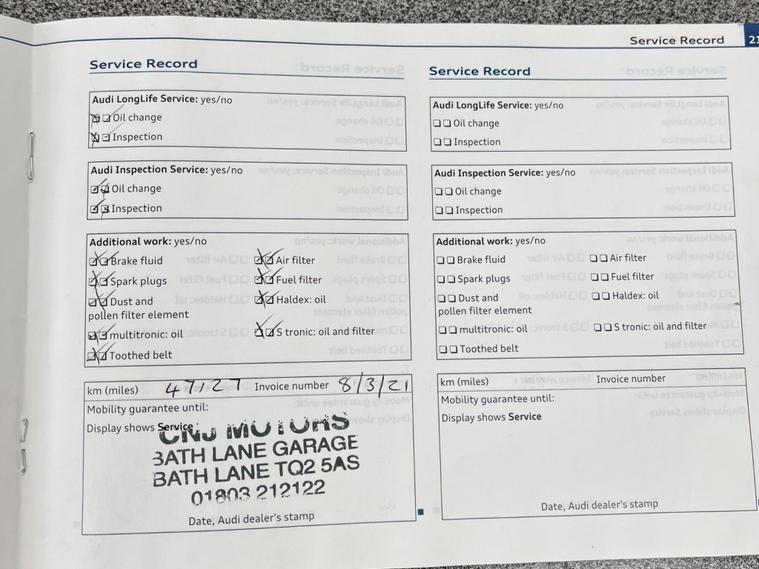 Service Record 21
Service Record
Audi LongLife Service: yes/no
Oil change
Inspection
Audi Inspection Service: yes/no
Oil change
Inspection
Additional work: yes/no
Brake fluid Air filter
Spark plugs Fuel filter
Dust and Haldex: oil
pollen filter element
multitronic: oil S tronic: oil and filter
Toothed belt
km (miles) 47127 Invoice number 8/3/21
Mobility guarantee until:
Display shows Service
CNJ MOTORS
BATH LANE GARAGE
BATH LANE TQ2 5AS
01803 212122
Date, Audi dealer's stamp
Service Record
Audi LongLife Service: yes/no
Oil change
Inspection
Audi Inspection Service: yes/no
Oil change
Inspection
Additional work: yes/no
Brake fluid Air filter
Spark plugs Fuel filter
Dust and Haldex: oil
pollen filter element
multitronic: oil S tronic: oil and filter
Toothed belt
km (miles) Invoice number
Mobility guarantee until:
Display shows Service
Date, Audi dealer's stamp